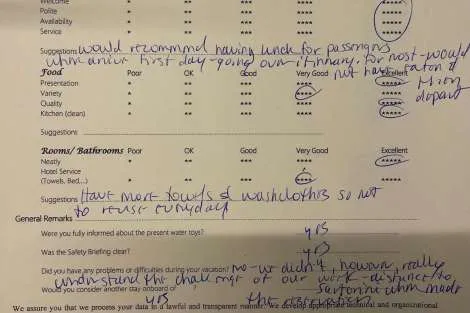 Welcome * ** *** **** *****
Polite * ** *** **** *****
Availability * ** *** **** *****
Service * ** *** **** *****
Suggestions would recommend having lunch for passengers
when arrive first day - going over itinerary. for most - would
not have eaten &
Food Poor OK Good Very Good Excellent
Presentation * ** *** **** *****
Variety * ** *** **** *****
depart
Quality * ** *** **** *****
Kitchen (clean) * ** *** **** *****
Suggestions
Rooms/ Bathrooms Poor OK Good Very Good Excellent
Neatly * ** *** **** *****
Hotel Service
(Towels, Bed...) * ** *** **** *****
Suggestions Have more towels & washcloths so not
to reuse everyday
General Remarks
Were you fully informed about the present water toys? yes
Was the Safety Briefing clear? yes
Did you have any problems or difficulties during your vacation? No - we didn't, however, really
understand the challenge of our work - distance to
Would you consider another stay onboard of yes when made
the reservation
We assure you that we process your data in a lawful and transparent manner. We develop appropriate technical and organizational